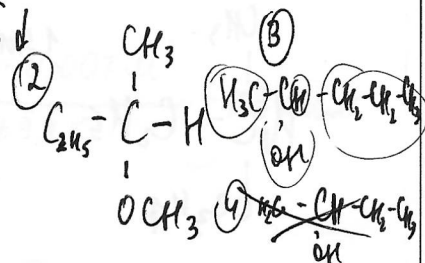 CH3
② C2H5 - C - H
OCH3
③ H3C - CH - CH2 - CH2 - CH3
OH
④ H3C - CH - CH2 - CH3
OH